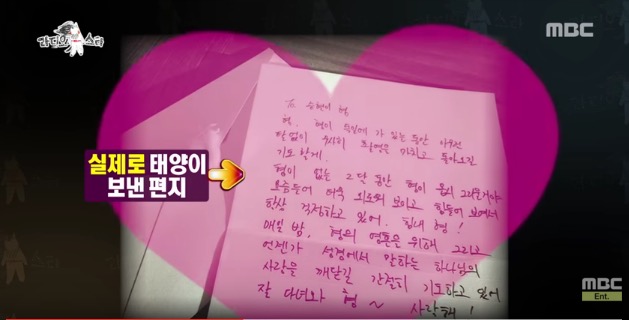 라디오 스타
MBC
실제로 태양이
보낸 편지
To 승현이 형
형. 형이 독일에 가 있는 동안 아무런
탈없이 무사히 촬영을 마치고 돌아오길
기도 할게.
형이 없는 2달 동안 형이 몹시 그리울거야
요즘들어 더욱 외로워 보이고 힘들어 보여서
항상 걱정하고 있어. 힘내 형!
매일 밤, 형의 영혼을 위해 그리고
언젠가 성경에서 말하는 하나님의
사랑을 깨닫길 간절히 기도하고 있어
잘 다녀와 형~ 사랑해!
MBC
Ent.